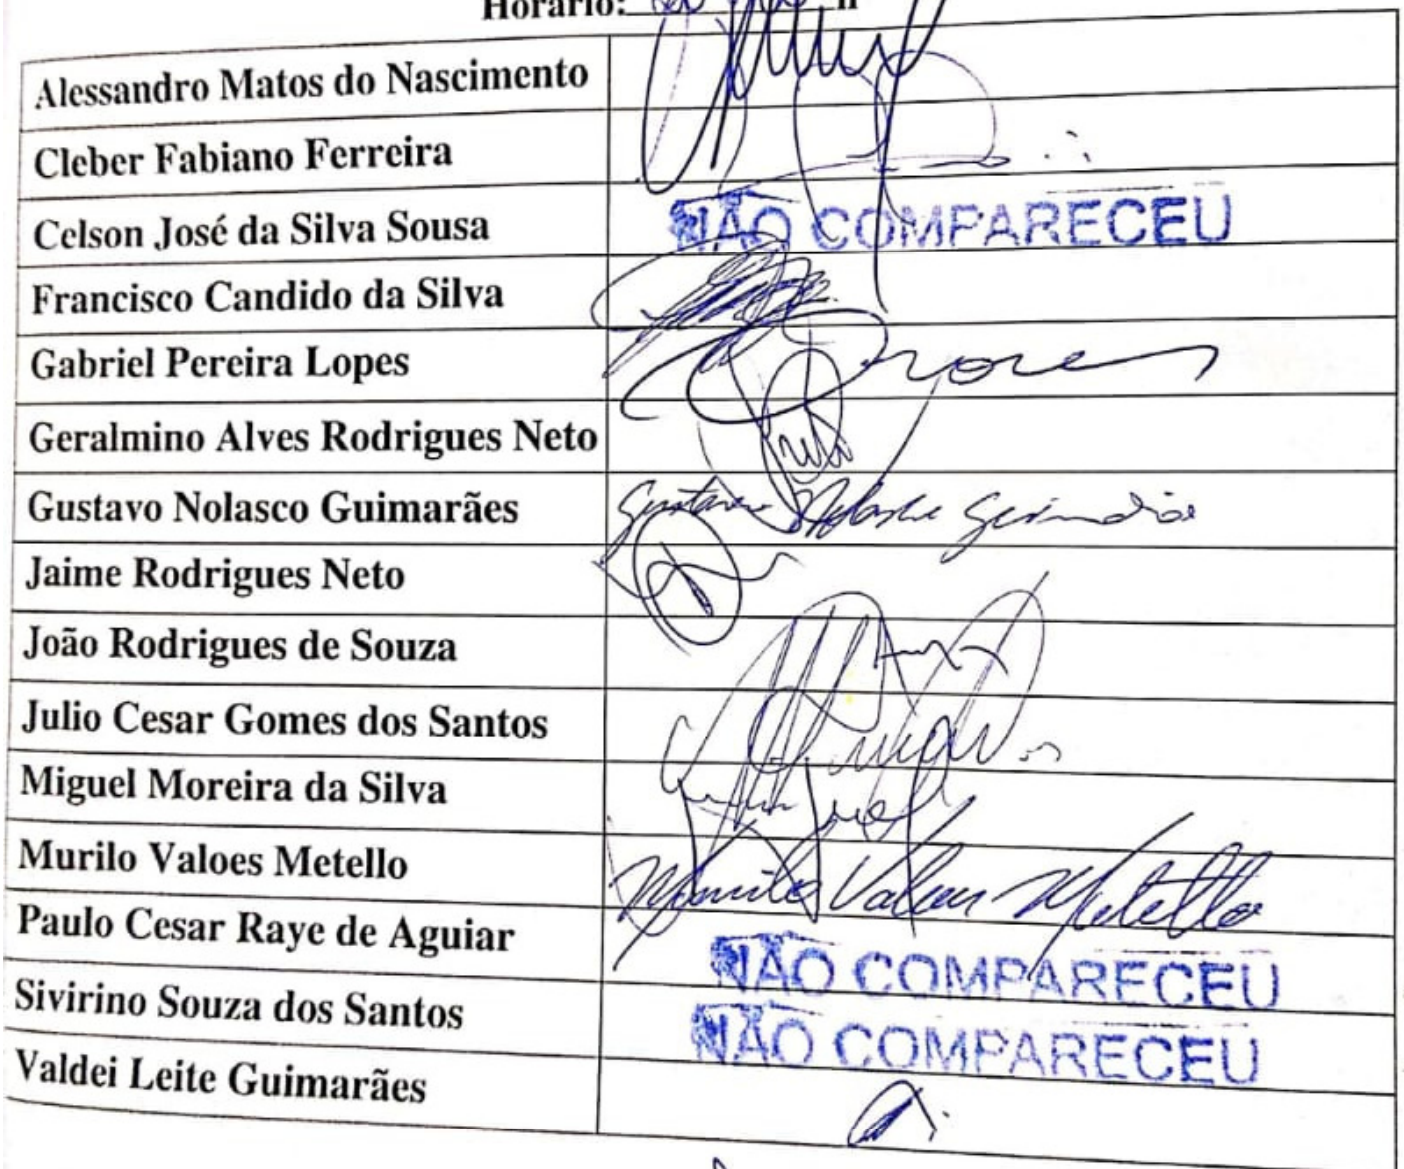 Horário: h
Alessandro Matos do Nascimento
Cleber Fabiano Ferreira
Celson José da Silva Sousa NÃO COMPARECEU
Francisco Candido da Silva
Gabriel Pereira Lopes
Geralmino Alves Rodrigues Neto
Gustavo Nolasco Guimarães Gustavo Nolasco Guimarães
Jaime Rodrigues Neto
João Rodrigues de Souza
Julio Cesar Gomes dos Santos
Miguel Moreira da Silva
Murilo Valoes Metello Murilo Valoes Metello
Paulo Cesar Raye de Aguiar NÃO COMPARECEU
Sivirino Souza dos Santos NÃO COMPARECEU
Valdei Leite Guimarães